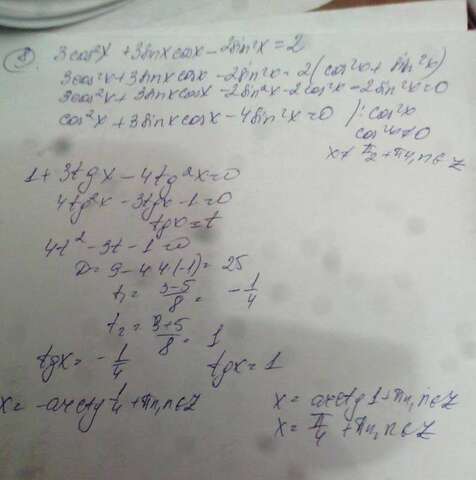 8. 3cos²x + 3sinxcosx - 2sin²x = 2
3cos²x + 3sinxcosx - 2sin²x = 2(cos²x + sin²x)
3cos²x + 3sinxcosx - 2sin²x - 2cos²x - 2sin²x = 0
cos²x + 3sinxcosx - 4sin²x = 0 /: cos²x
cos²x ≠ 0
x ≠ π/2 + πn, n ∈ Z
1 + 3tgx - 4tg²x = 0
4tg²x - 3tgx - 1 = 0
tgx = t
4t² - 3t - 1 = 0
D = 9 - 4·4(-1) = 25
t₁ = (3-5)/8 = -1/4
t₂ = (3+5)/8 = 1
tgx = -1/4 tgx = 1
x = -arctg 1/4 + πn, n ∈ Z x = arctg 1 + πn, n ∈ Z
x = π/4 + πn, n ∈ Z